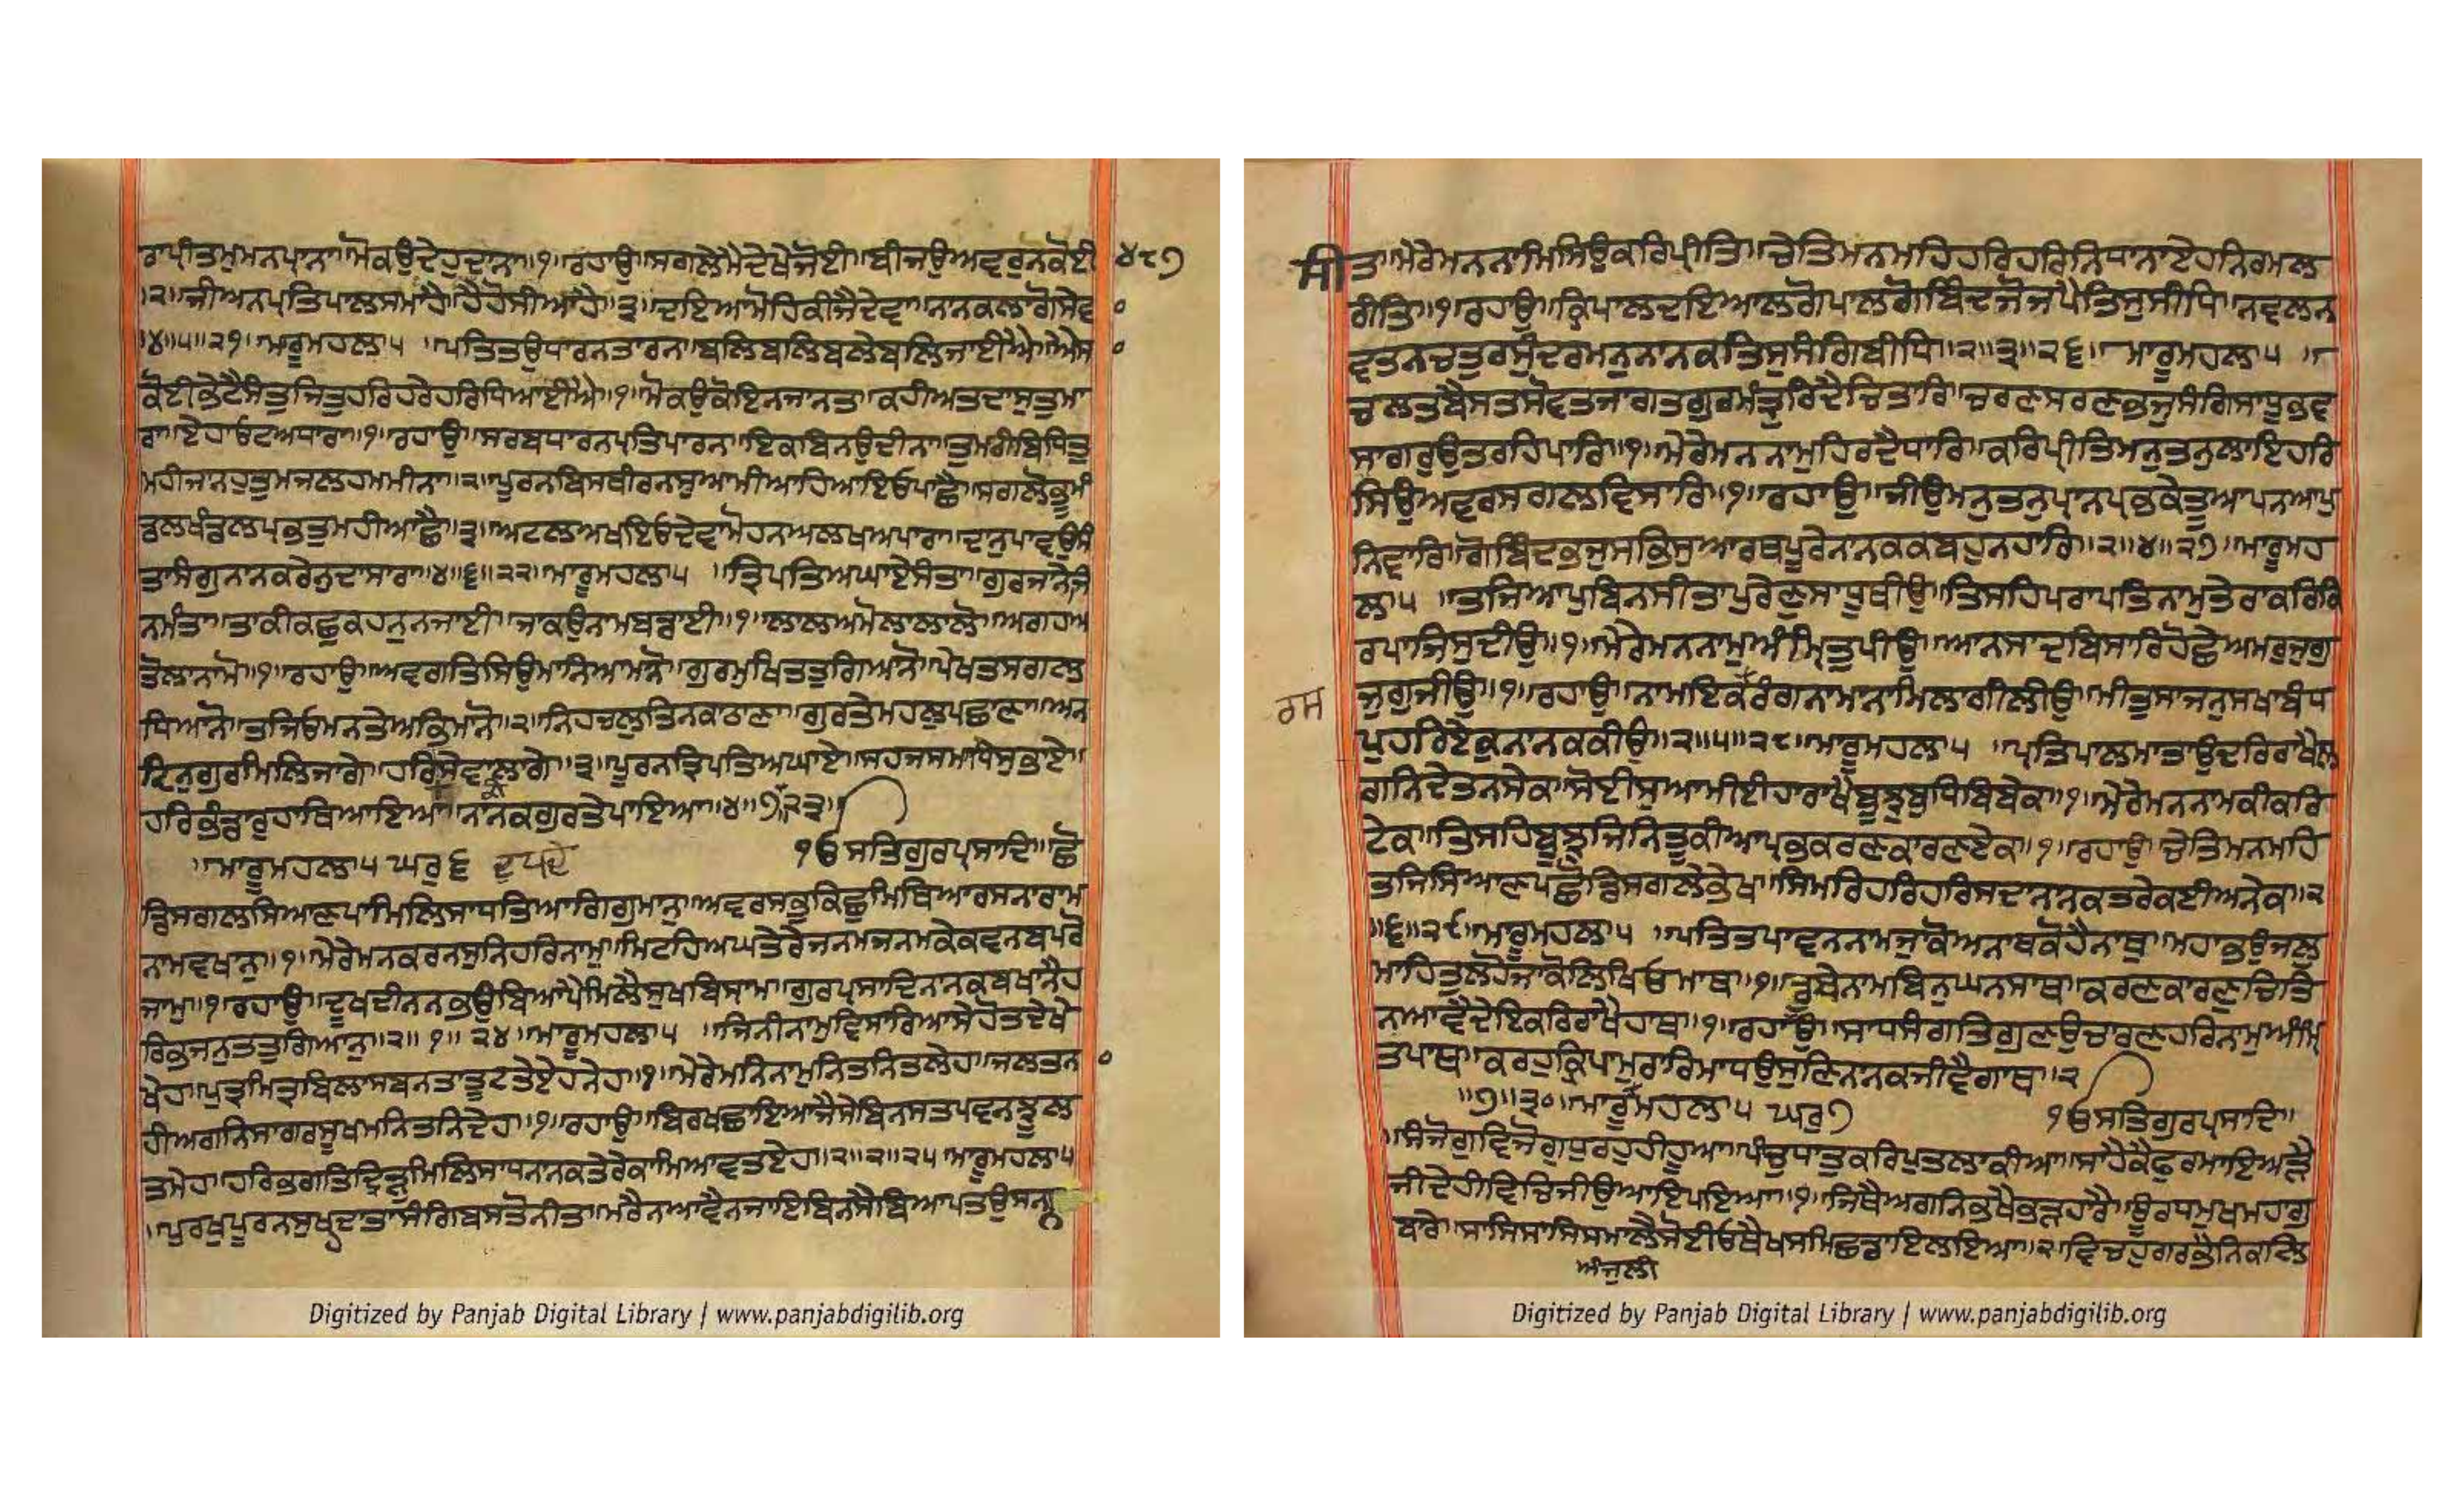 ਰਾਪ੍ਰੀਤਮੁਮਨਪ੍ਰਾਨਾ॥ਮੋਕਉਦੇਹੁਦਾਨਾ॥੧॥ਰਹਾਉ॥ਸਗਲੇਮੈਦੇਖੇਜੋਈ॥ਬੀਜਉਅਵਰੁਨਕੋਈ ੪੮੭
॥੨॥ਜੀਅਨਪ੍ਰਤਿਪਾਲਸਮਾਹੈ॥ਹੈਹੋਸੀਆਹੈ॥੩॥ਦਇਆਮੋਹਿਕੀਜੈਦੇਵਾ॥ਨਾਨਕਲਾਗੋਸੇਵ
॥੪॥੫॥੨੧॥ਮਾਰੂਮਹਲਾ੫ ॥ਪਤਿਤਉਧਾਰਨਤਾਰਨ॥ਬਲਿਬਲਿਬਲੇਬਲਿਜਾਈਐ॥ਐਸ
ਕੋਈਭੇਟੈਸੰਤੁਜਿਤੁਹਰਿਹਰੇਹਰਿਧਿਆਈਐ॥੧॥ਮੋਕਉਕੋਇਨਜਾਨਤਾ॥ਕਹੀਅਤਦਾਸੁਤੁਮਾ
ਰਾ॥ਏਹਾਓਟਅਧਾਰਾ॥੧॥ਰਹਾਉ॥ਸਰਬਧਾਰਨਪ੍ਰਤਿਪਾਰਨਾ॥ਇਕਬਿਨਉਦੀਨਾ॥ਤੁਮਰੀਬਿਧਿਤੁ
ਮਹੀਜਾਨਹੁਤੁਮਜਲਹਮਮੀਨਾ॥੨॥ਪੂਰਨਬਿਸਥੀਰਨਸੁਆਮੀਆਹਿਆਇਓਪਾਛੈ॥ਸਗਲੋਭੂਮੰ
ਡਲਖੰਡਲਪ੍ਰਭਤੁਮਹੀਆਛੈ॥੩॥ਅਟਲਅਖਇਓਦੇਵਾਮੋਹਨਅਲਖਅਪਾਰਾ॥ਦਾਨੁਪਾਵਉਸੰ
ਤਾਸੰਗੁਨਾਨਕਰੇਨੁਦਾਸਾਰਾ॥੪॥੬॥੨੨॥ਮਾਰੂਮਹਲਾ੫ ॥ਤ੍ਰਿਪਤਿਅਘਾਏਸੰਤਾ॥ਗੁਰਜਾਨੇਜਿ
ਨਮੰਤਾ॥ਤਾਕੀਕਛੁਕਹਨੁਨਜਾਈ॥ਜਾਕਉਨਾਮਬਡਾਈ॥੧॥ਲਾਲਅਮੋਲਾਲਾਲੋ॥ਅਗਹਅ
ਤੋਲਾਨਾਮੋ॥੧॥ਰਹਾਉ॥ਅਵਗਤਿਸਿਉਮਾਨਿਆਮਾਨੋ॥ਗੁਰਮੁਖਿਤਤੁਗਿਆਨੋ॥ਪੇਖਤਸਗਲ
ਧਿਆਨੋ॥ਤਜਿਓਮਨਤੇਅਭਿਮਾਨੋ॥੨॥ਨਿਹਚਲੁਤਿਨਕਾਠਾਣਾ॥ਗੁਰਤੇਮਹਲੁਪਛਾਣਾ॥ਅਨ
ਦਿਨੁਗੁਰਮਿਲਿਜਾਗੇ॥ਹਰਿਸੇਵਾਲਾਗੇ॥੩॥ਪੂਰਨਤ੍ਰਿਪਤਿਅਘਾਏ॥ਸਹਜਸਮਾਧਿਸੁਭਾਏ॥
ਹਰਿਭੰਡਾਰੁਹਾਥਿਆਇਆ॥ਨਾਨਕਗੁਰਤੇਪਾਇਆ॥੪॥੭॥੨੩॥
॥ਮਾਰੂਮਹਲਾ੫ ਘਰੁ੬ ਦੁਪਦੇ ੧ਓਸਤਿਗੁਰਪ੍ਰਸਾਦਿ॥ਛੋ
ਡਿਸਗਲਸਿਆਣਪਾਮਿਲਿਸਾਧਤਿਆਗਿਗੁਮਾਨੁ॥ਅਵਰਸਭੁਕਿਛੁਮਿਥਿਆਰਸਨਾਰਾਮ
ਨਾਮਵਖਾਨੁ॥੧॥ਮੇਰੇਮਨਕਰਨਸੁਨਿਹਰਿਨਾਮੁ॥ਮਿਟਹਿਅਘਤੇਰੇਜਨਮਜਨਮਕੇਕਵਨਬਪੁਰੋ
ਜਾਮੁ॥੧॥ਰਹਾਉ॥ਦੂਖਦੀਨਨਭਉਬਿਆਪੈਮਿਲੈਸੁਖਬਿਸ੍ਰਾਮਾ॥ਗੁਰਪ੍ਰਸਾਦਿਨਾਨਕੁਬਖਾਨੈਹ
ਰਿਭਜਨੁਤਤੁਗਿਆਨੁ॥੨॥੧॥੨੪॥ਮਾਰੂਮਹਲਾ੫ ॥ਜਿਨੀਨਾਮੁਵਿਸਾਰਿਆਸੇਹੋਤਦੇਖੇ
ਖੇਹ॥ਪੁਤ੍ਰਮਿਤ੍ਰਬਿਲਾਸਬਨਤਾਤੂਟਤੇਏਹਨੇਹ॥੧॥ਮੇਰੇਮਨਿਨਾਮੁਨਿਤਨਿਤਲੇਹ॥ਜਲਤਨ
ਹੀਅਗਨਿਸਾਗਰਸੂਖਮਨਿਤਨਿਦੇਹ॥੧॥ਰਹਾਉ॥ਬਿਰਖਛਾਇਆਜੈਸੇਬਿਨਸਤਪਵਨਝੂਲ
ਤਮੇਹ॥ਹਰਿਭਗਤਿਦ੍ਰਿੜੁਮਿਲਿਸਾਧਨਾਨਕਤੇਰੇਕਾਮਿਆਵਤਏਹ॥੨॥੨॥੨੫ਮਾਰੂਮਹਲਾ੫
॥ਪੁਰਖੁਪੂਰਨਸੁਖਦਾਤਾਸੰਗਿਬਸਤੋਨੀਤ॥ਮਰੈਨਆਵੈਨਜਾਇਬਿਨਸੈਬਿਆਪਤਉਸਨ
ਸੀਤ॥ਮੇਰੇਮਨਨਾਮਸਿਉਕਰਿਪ੍ਰੀਤਿ॥ਚੇਤਿਮਨਮਹਿਹਰਿਹਰਿਨਿਧਾਨਾਏਹਨਿਰਮਲ
ਰੀਤਿ॥੧॥ਰਹਾਉ॥ਕ੍ਰਿਪਾਲਦਇਆਲਗੋਪਾਲਗੋਬਿੰਦਜੋਜਪੈਤਿਸੁਸੀਧਿ॥ਨਵਲਨ
ਵਤਨਚਤੁਰਸੁੰਦਰਮਨੁਨਾਨਕਤਿਸੁਸੰਗਿਬੀਧਿ॥੨॥੩॥੨੬॥ਮਾਰੂਮਹਲਾ੫ ॥
ਚਲਤਬੈਸਤਸੋਵਤਜਾਗਤਗੁਰਮੰਤ੍ਰੁਰਿਦੈਚਿਤਾਰਿ॥ਚਰਣਸਰਣਭਜੁਸੰਗਿਸਾਧੂਭਵ
ਸਾਗਰਉਤਰਹਿਪਾਰਿ॥੧॥ਮੇਰੇਮਨਨਾਮੁਹਿਰਦੈਧਾਰਿ॥ਕਰਿਪ੍ਰੀਤਿਮਨੁਤਨੁਲਾਇਹਰਿ
ਸਿਉਅਵਰਸਗਲਵਿਸਾਰਿ॥੧॥ਰਹਾਉ॥ਜੀਉਮਨੁਤਨੁਪ੍ਰਾਨਪ੍ਰਭਕੇਤੂਆਪਨਆਪੁ
ਨਿਵਾਰਿ॥ਗੋਬਿੰਦਭਜੁਸਭਿਸੁਆਰਥਪੂਰੇਨਾਨਕਕਬਹੁਨਹਾਰਿ॥੨॥੪॥੨੭॥ਮਾਰੂਮਹ
ਲਾ੫ ॥ਤਜਿਆਪੁਬਿਨਸੀਤਾਪੁਰੇਣੁਸਾਧੂਥੀਉ॥ਤਿਸਹਿਪਰਾਪਤਿਨਾਮੁਤੇਰਾਕਰਿਕਿ
ਰਪਾਜਿਸੁਦੀਉ॥੧॥ਮੇਰੇਮਨਨਾਮੁਅੰਮ੍ਰਿਤੁਪੀਉ॥ਆਨਸਾਦਬਿਸਾਰਿਹੋਛੇਅਮਰੁਜੁਗੁ
ਰਸ ਜੁਗੁਜੀਉ॥੧॥ਰਹਾਉ॥ਨਾਮਇਕਰੰਗਨਾਮਾਨਾਮਿਲਾਗੀਲੀਉ॥ਮੀਤੁਸਾਜਨੁਸਖਾਬੰਧ
ਪੁਹਰਿਏਕੁਨਾਨਕਕੀਉ॥੨॥੫॥੨੮॥ਮਾਰੂਮਹਲਾ੫ ॥ਪ੍ਰਤਿਪਾਲਮਾਤਾਉਦਰਿਰਾਖੈਲ
ਗਨਿਦੇਤਨਸੇਕ॥ਸੋਈਸੁਆਮੀਈਹਾਰਾਖੈਬੂਝੁਬੁਧਿਬਿਬੇਕ॥੧॥ਮੇਰੇਮਨਨਾਮਕੀਕਰਿ
ਟੇਕ॥ਤਿਸਹਿਬੂਝੁਜਿਨਿਤੂਕੀਆਪ੍ਰਭੁਕਰਣਕਾਰਣਏਕ॥੧॥ਰਹਾਉ॥ਚੇਤਿਮਨਮਹਿ
ਤਜਿਸਿਆਣਪਛੋਡਿਸਗਲੇਭੇਖ॥ਸਿਮਰਿਹਰਿਹਰਿਸਦਾਨਾਨਕਤਰੇਕਈਅਨੇਕ॥੨
॥੬॥੨੯॥ਮਾਰੂਮਹਲਾ੫ ॥ਪਤਿਤਪਾਵਨਨਾਮਜਾਕੋਅਨਾਥਕੋਹੈਨਾਥੁ॥ਮਹਾਭਉਜਲ
ਮਾਹਿਤੁਲਹੋਜਾਕੋਲਿਖਿਓਮਾਥ॥੧॥ਡੂਬੇਨਾਮਬਿਨੁਘਨਸਾਥ॥ਕਰਣਕਾਰਣੁਚਿਤਿ
ਨਆਵੈਦੇਇਕਰਿਰਾਖੈਹਾਥ॥੧॥ਰਹਾਉ॥ਸਾਧਸੰਗਤਿਗੁਣਉਚਾਰਣਹਰਿਨਾਮੁਅੰਮ੍ਰਿ
ਤਪਾਥ॥ਕਰਹੁਕ੍ਰਿਪਾਮੁਰਾਰਿਮਾਧਉਸੁਣਿਨਾਨਕਜੀਵੈਗਾਥ॥੨
॥੭॥੩੦॥ਮਾਰੂਮਹਲਾ੫ ਘਰੁ੭ ੧ਓਸਤਿਗੁਰਪ੍ਰਸਾਦਿ॥
॥ਸੰਜੋਗੁਵਿਜੋਗੁਧੁਰਹੁਹੀਹੂਆ॥ਪੰਚਧਾਤੁਕਰਿਪੁਤਲਾਕੀਆ॥ਸਾਹੈਕੈਫੁਰਮਾਇਅੜੈ
ਜੀਦੇਹੀਵਿਚਿਜੀਉਆਇਪਇਆ॥੧॥ਜਿਥੈਅਗਨਿਭਖੈਭੜਹਾਰੇ॥ਊਰਧਮੁਖਮਹਾਗੁ
ਬਾਰੇ॥ਸਾਸਿਸਾਸਿਸਮਾਲੇਸੋਈਓਥੈਖਸਮਿਛਡਾਇਲਇਆ॥੨॥ਵਿਚਹੁਗਰਭੈਨਿਕਲਿ
ਅੰਜੁਲੀ
Digitized by Panjab Digital Library | www.panjabdigilib.org
Digitized by Panjab Digital Library | www.panjabdigilib.org